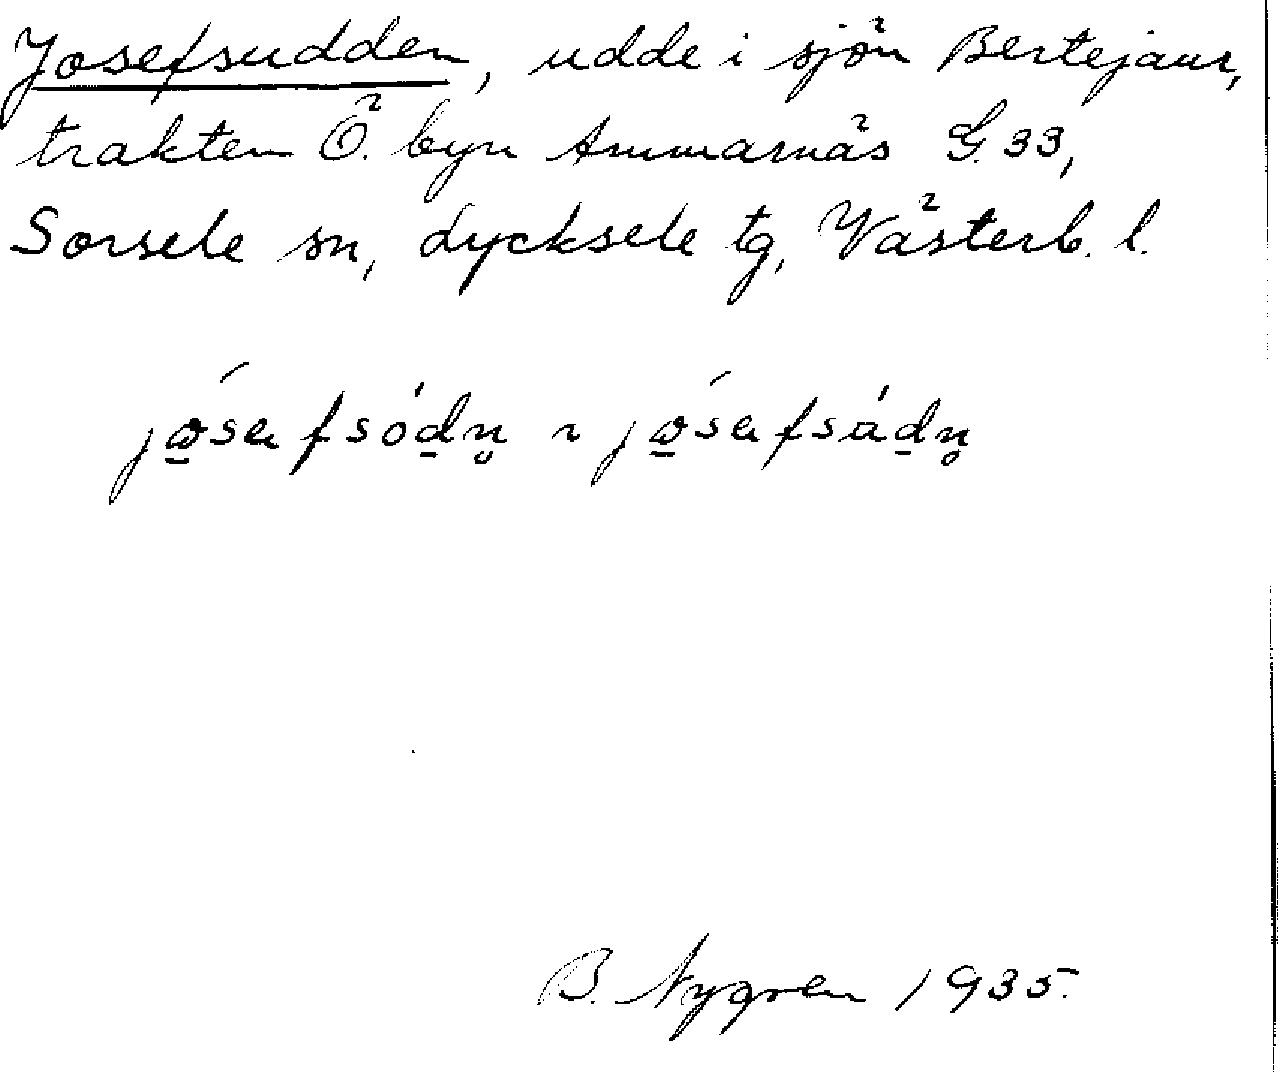 Josefsudden, udde i sjön Bertejaur,
trakten Ö. byn Ammarnäs G. 33,
Sorsele sn, Lycksele tg, Västerb. l.
B. Nygren 1935.